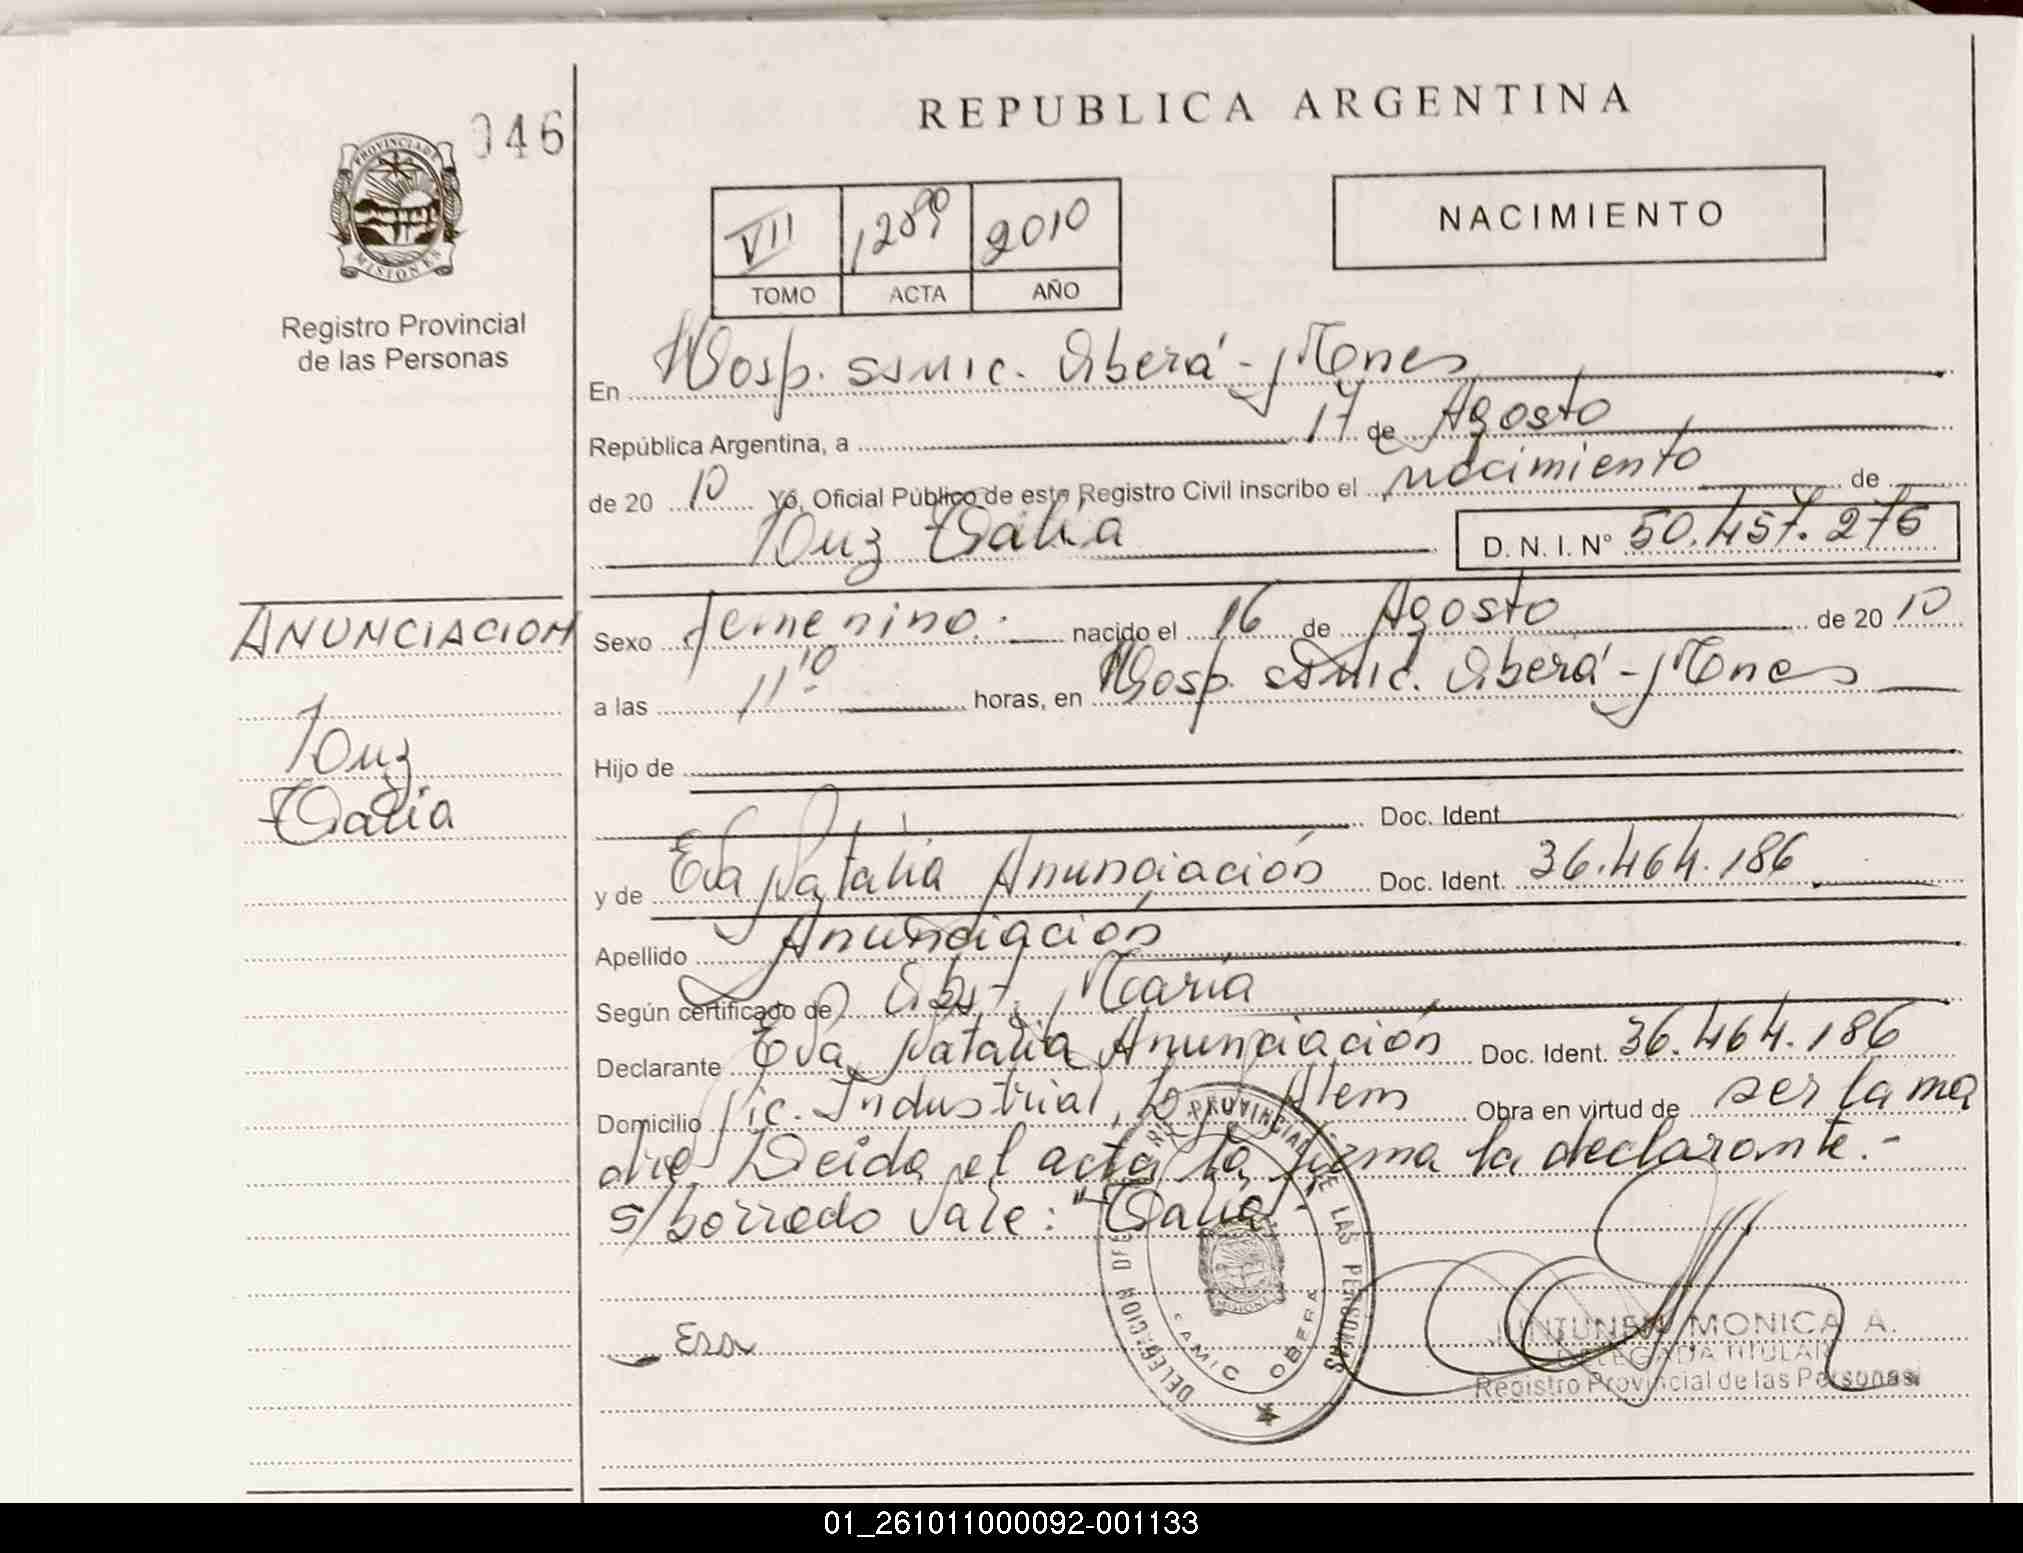 046
REPUBLICA ARGENTINA
PROVINCIA DE
MISIONES
NACIMIENTO
VII 1289 2010
TOMO ACTA AÑO
Registro Provincial
de las Personas
En Hosp. SAMIC. Oberá - Mones
República Argentina, a 17 de Agosto
de 20 10 Yo, Oficial Público de este Registro Civil inscribo el nacimiento de
Luz Talia D. N. I. N° 50.457.276
ANUNCIACION
Sexo femenino. nacido el 16 de Agosto de 20 10
a las 11 10 horas, en Hosp. SAMIC. Oberá - Mones
Luz
Talia
Hijo de
Doc. Ident.
y de Eva Natalia Anunciación Doc. Ident. 36.464.186
Apellido Anunciación
Según certificado de Obst. María
Declarante Eva Natalia Anunciación Doc. Ident. 36.464.186
Domicilio Pic. Industrial, L. N. Alem Obra en virtud de ser la ma
dre. Leida el acta la firma la declarante.-
s/borrado Vale: "Talia".
Eva
PROVINCIAL DE LAS PERSONAS
DELEGACION
SAMIC OBERA
JUNTUNEN MONICA A.
DELEGADA TITULAR
Registro Provincial de las Personas
01_261011000092-001133